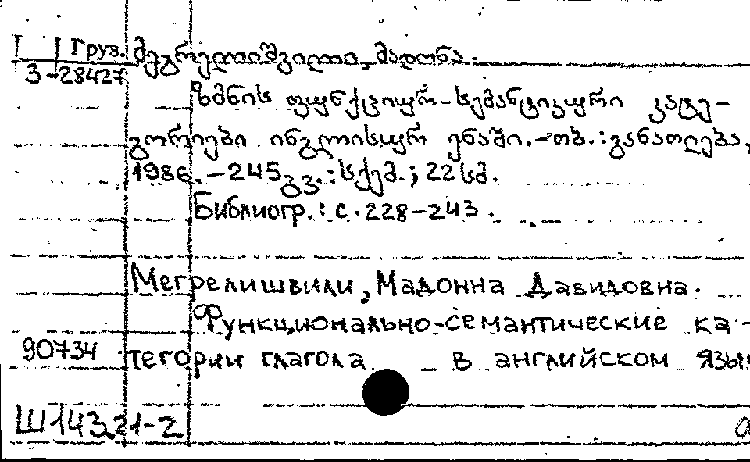 Груз. მეგრელიშვილი, მადონა.
3-28427
ზმნის ფუნქციურ-სემანტიკური კატე-
გორიები ინგლისურ ენაში.-თბ.: განათლება,
1986. - 245 გვ.: სქემ.; 22 სმ.
Библиогр.: с. 228-243.
Мегрелишвили, Мадонна Давидовна.
Функционально-семантические ка-
90734 тегории глагола в английском язы
Ш143.21-2